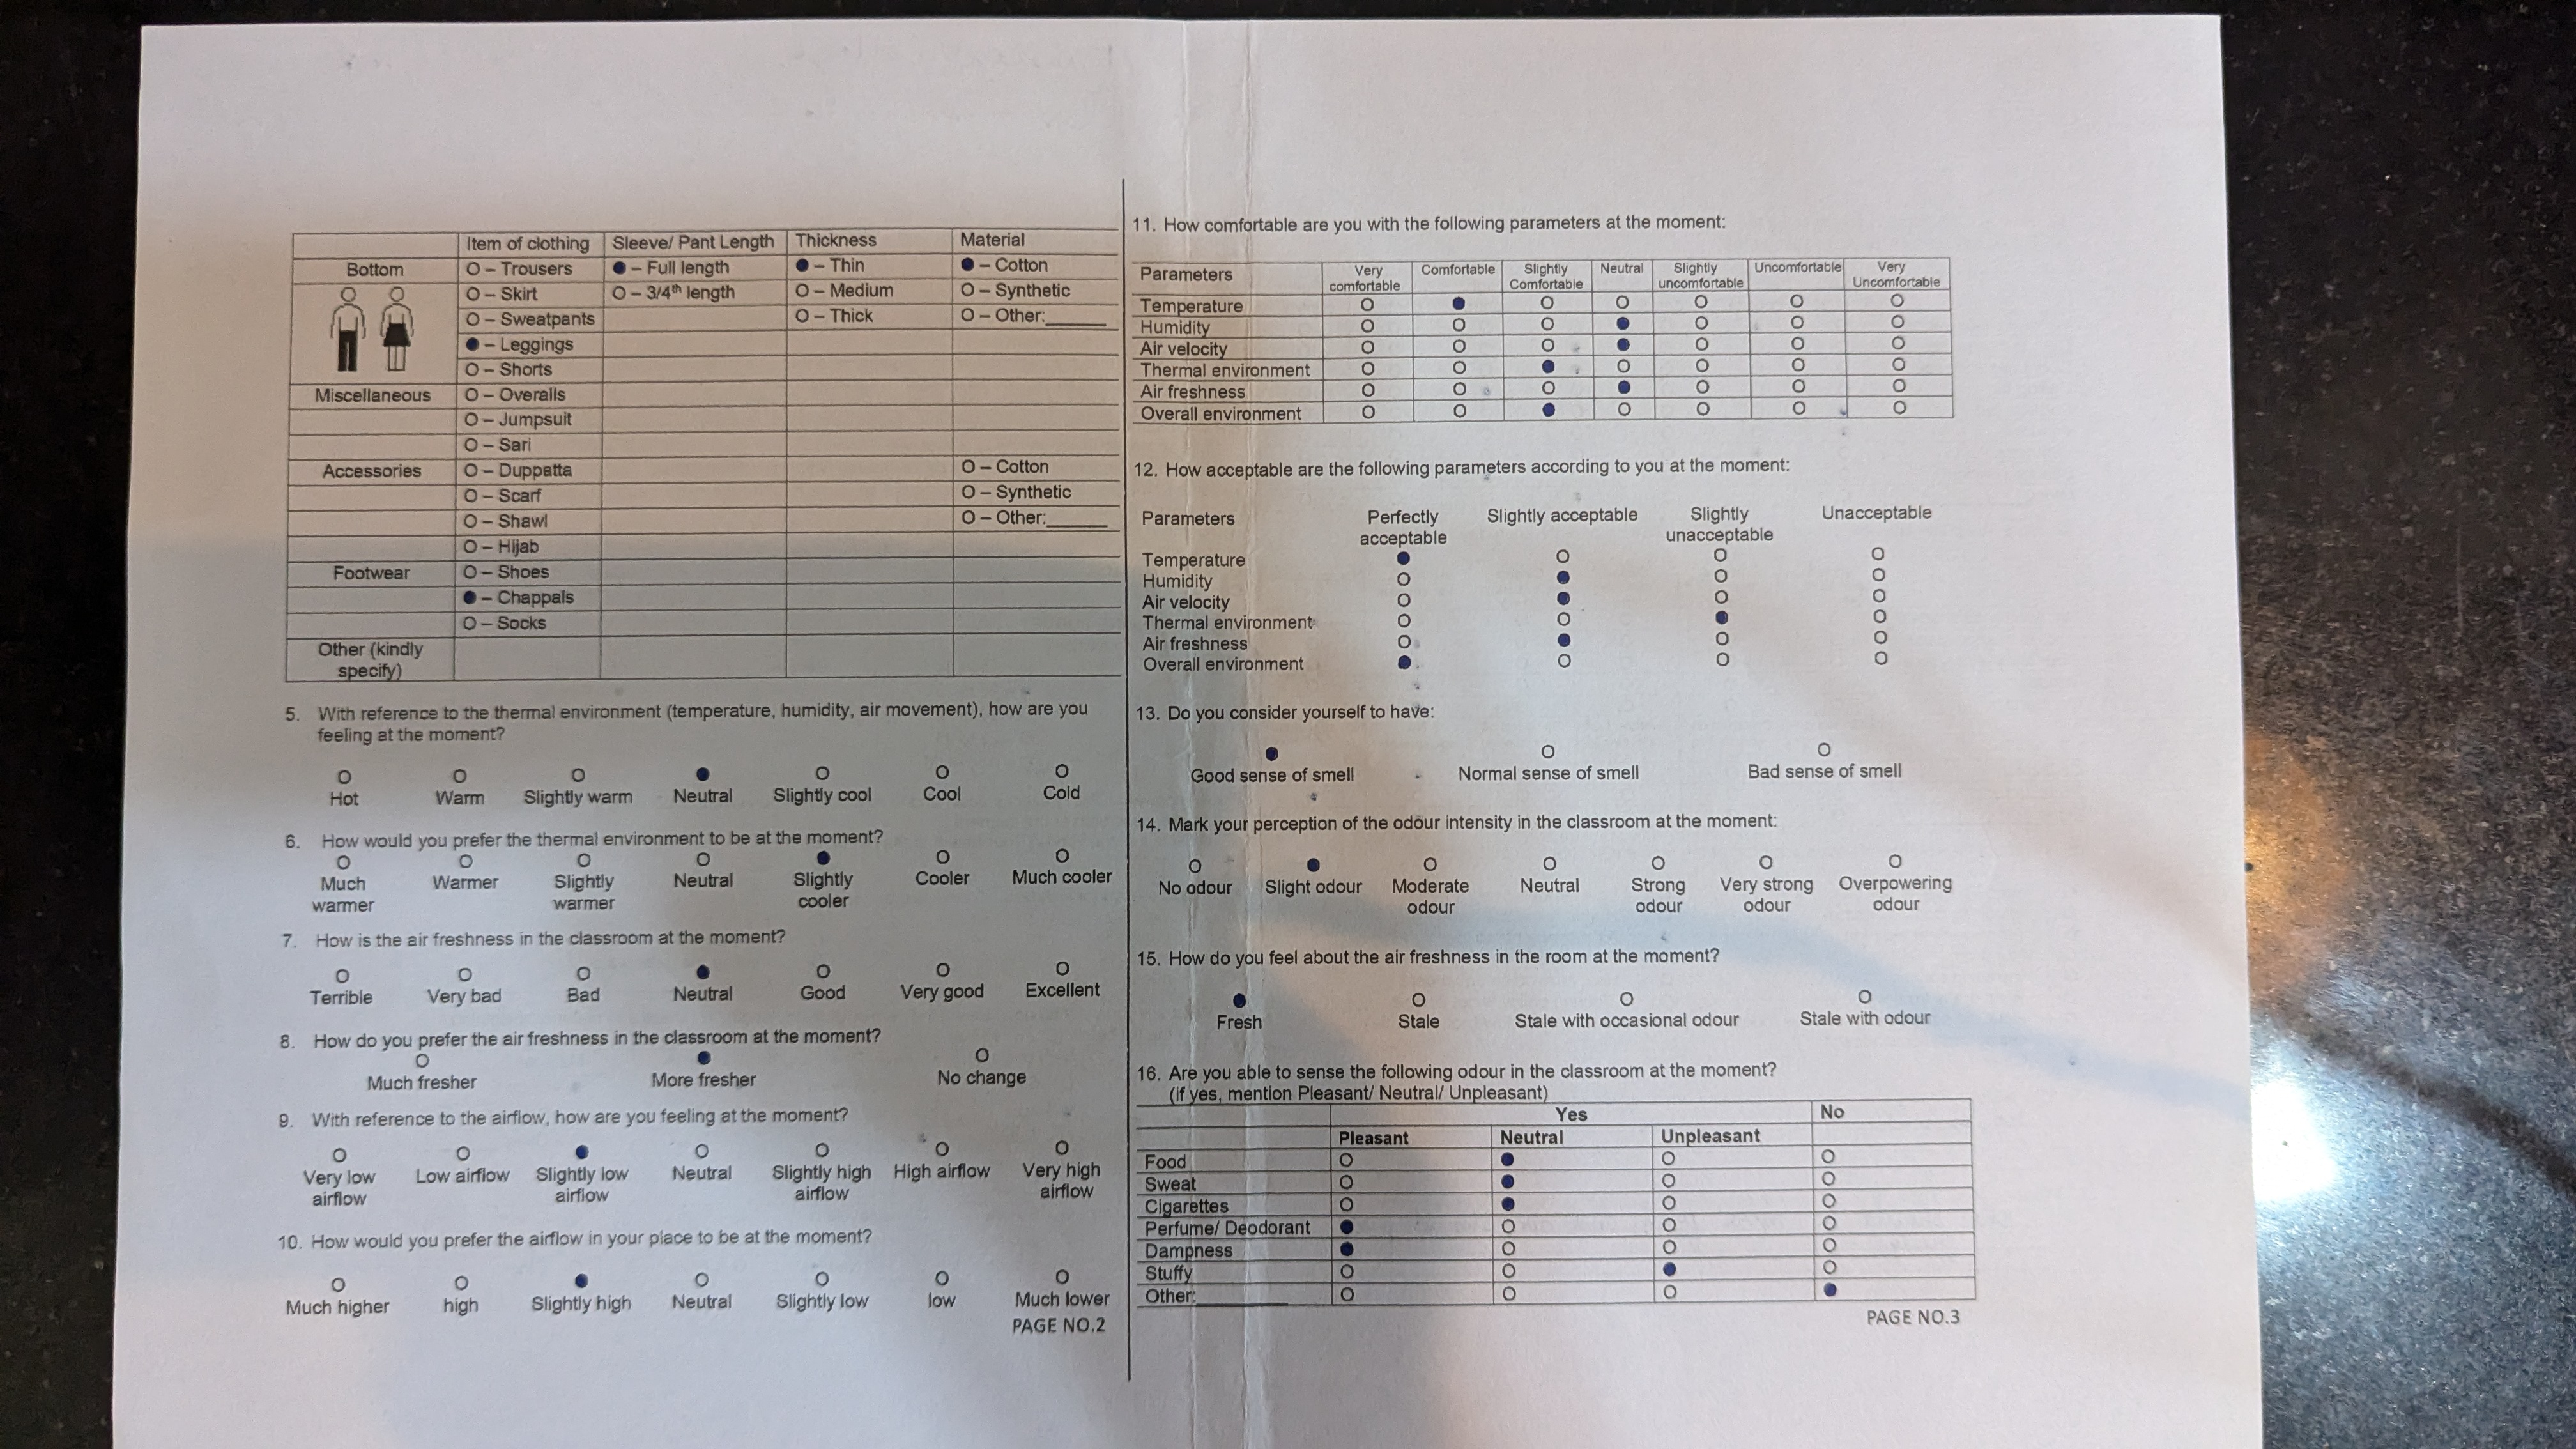 Item of clothing Sleeve/ Pant Length Thickness Material
Bottom O – Trousers ● – Full length ● – Thin ● – Cotton
O – Skirt O – 3/4th length O – Medium O – Synthetic
O – Sweatpants O – Thick O – Other:______
● – Leggings
O – Shorts
Miscellaneous O – Overalls
O – Jumpsuit
O – Sari
Accessories O – Duppatta O – Cotton
O – Scarf O – Synthetic
O – Shawl O – Other:______
O – Hijab
Footwear O – Shoes
● – Chappals
O – Socks
Other (kindly
specify)
5. With reference to the thermal environment (temperature, humidity, air movement), how are you
feeling at the moment?
O O O ● O O O
Hot Warm Slightly warm Neutral Slightly cool Cool Cold
6. How would you prefer the thermal environment to be at the moment?
O O O O ● O O
Much Warmer Slightly Neutral Slightly Cooler Much cooler
warmer warmer cooler
7. How is the air freshness in the classroom at the moment?
O O O ● O O O
Terrible Very bad Bad Neutral Good Very good Excellent
8. How do you prefer the air freshness in the classroom at the moment?
O ● O
Much fresher More fresher No change
9. With reference to the airflow, how are you feeling at the moment?
O O ● O O O O
Very low Low airflow Slightly low Neutral Slightly high High airflow Very high
airflow airflow airflow airflow
10. How would you prefer the airflow in your place to be at the moment?
O O ● O O O O
Much higher high Slightly high Neutral Slightly low low Much lower
PAGE NO.2
11. How comfortable are you with the following parameters at the moment:
Parameters Very Comfortable Slightly Neutral Slightly Uncomfortable Very
comfortable Comfortable uncomfortable Uncomfortable
Temperature O ● O O O O O
Humidity O O O ● O O O
Air velocity O O O ● O O O
Thermal environment O O ● O O O O
Air freshness O O O ● O O O
Overall environment O O ● O O O O
12. How acceptable are the following parameters according to you at the moment:
Parameters Perfectly Slightly acceptable Slightly Unacceptable
acceptable unacceptable
Temperature ● O O O
Humidity O ● O O
Air velocity O ● O O
Thermal environment O O ● O
Air freshness O ● O O
Overall environment ● O O O
13. Do you consider yourself to have:
● O O
Good sense of smell Normal sense of smell Bad sense of smell
14. Mark your perception of the odour intensity in the classroom at the moment:
O ● O O O O O
No odour Slight odour Moderate Neutral Strong Very strong Overpowering
odour odour odour odour
15. How do you feel about the air freshness in the room at the moment?
● O O O
Fresh Stale Stale with occasional odour Stale with odour
16. Are you able to sense the following odour in the classroom at the moment?
(if yes, mention Pleasant/ Neutral/ Unpleasant)
Yes No
Pleasant Neutral Unpleasant
Food O ● O O
Sweat O ● O O
Cigarettes O ● O O
Perfume/ Deodorant ● O O O
Dampness ● O O O
Stuffy O O ● O
Other:__________ O O O ●
PAGE NO.3